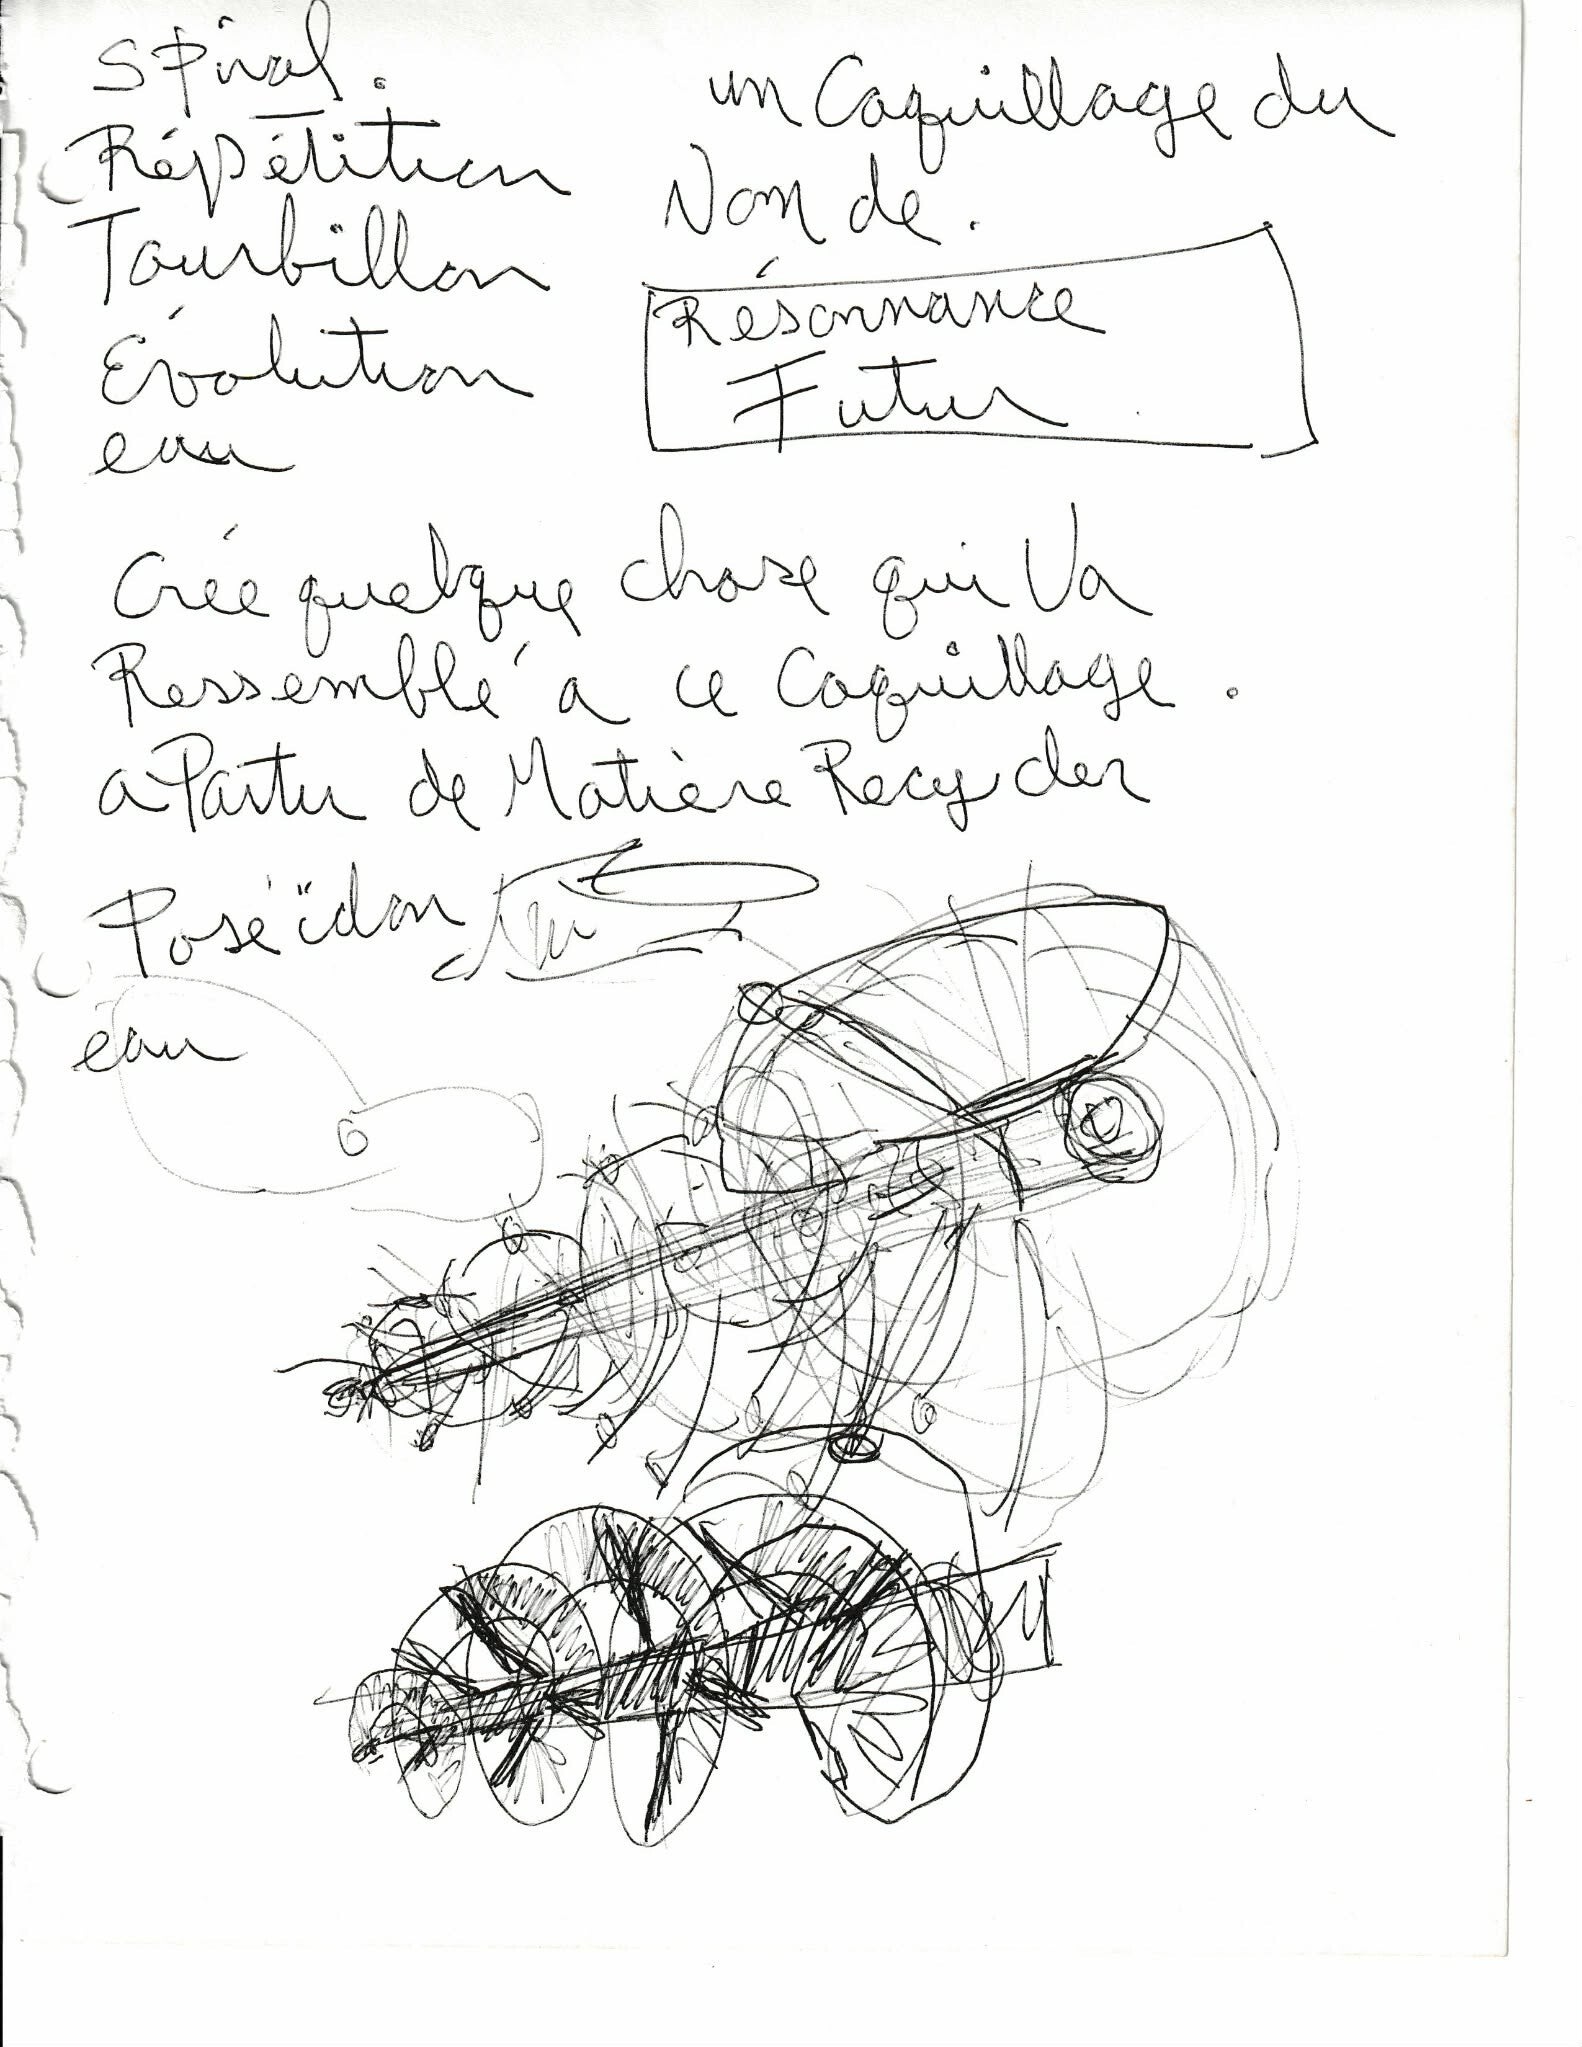 Spiral.
Répétition
Tourbillon
Évolution
eau
un Coquillage du
Nom de.
Résonnance
Futur
Créé quelque chose qui Va
Ressemblé a ce Coquillage.
a Partir de Matière Recycler
Poséïdon
eau